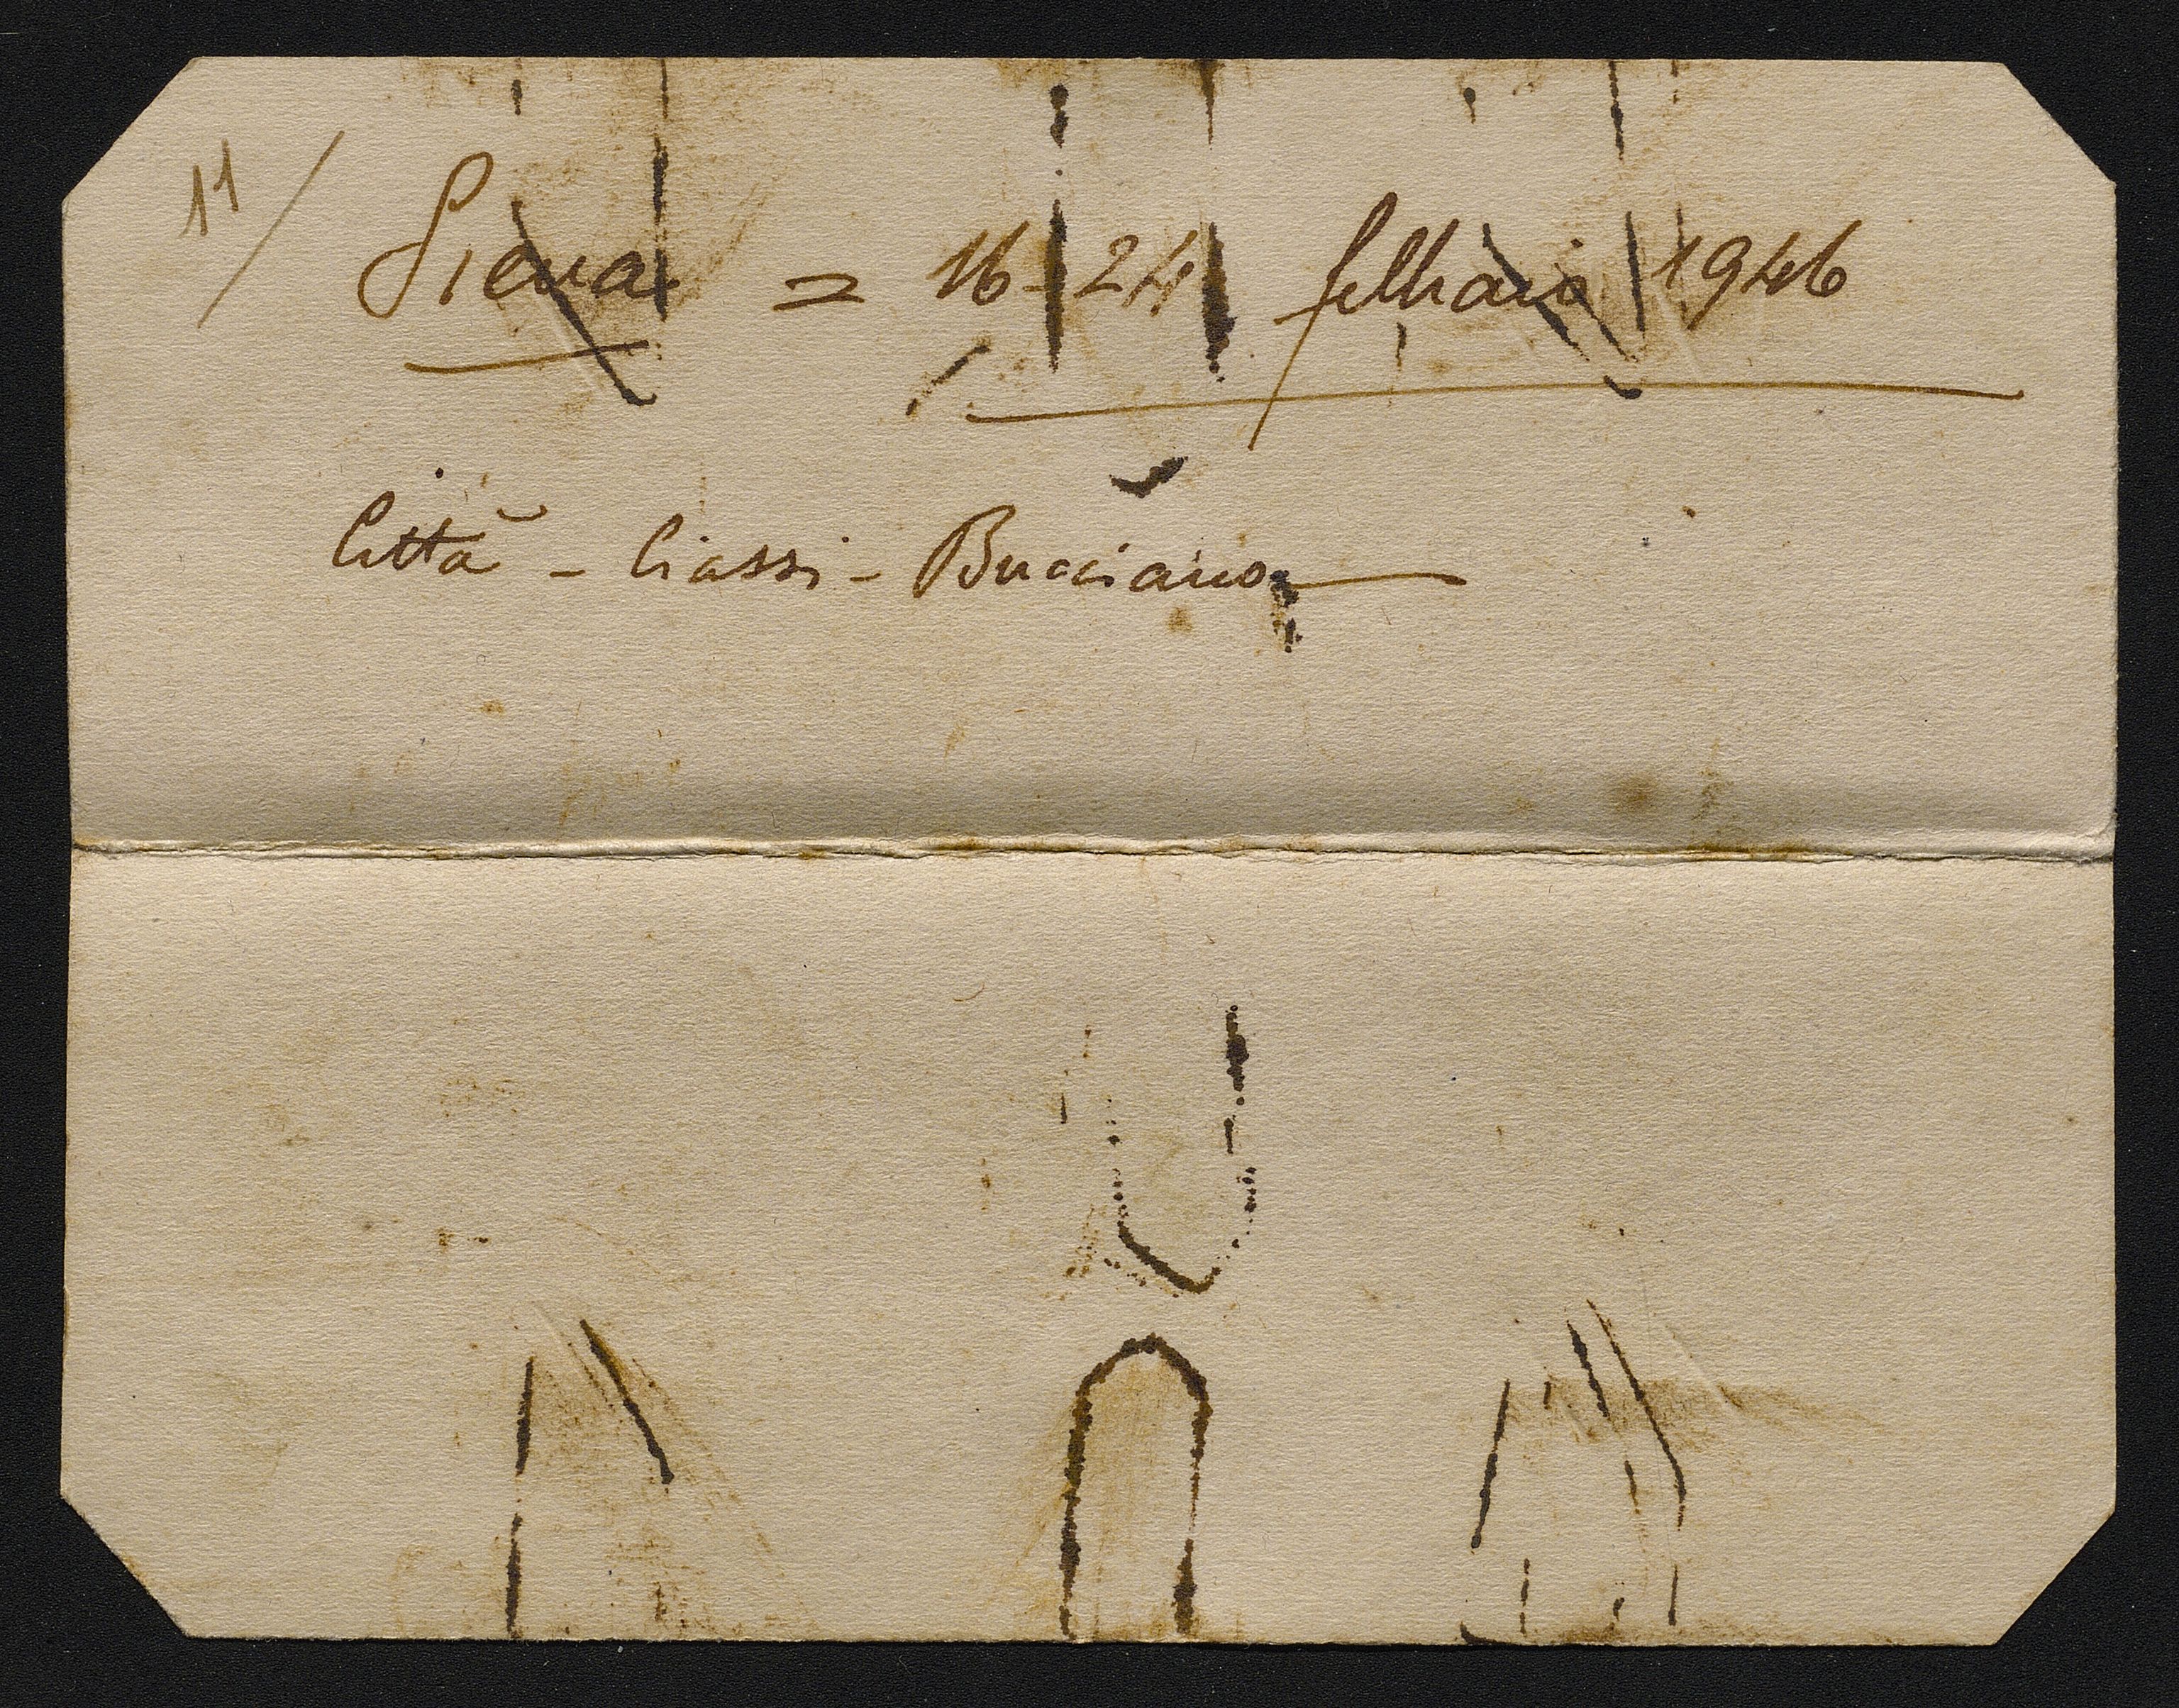 11/ Siena = 16-24 febbraio 1946
Città - Ciassi - Bucciano